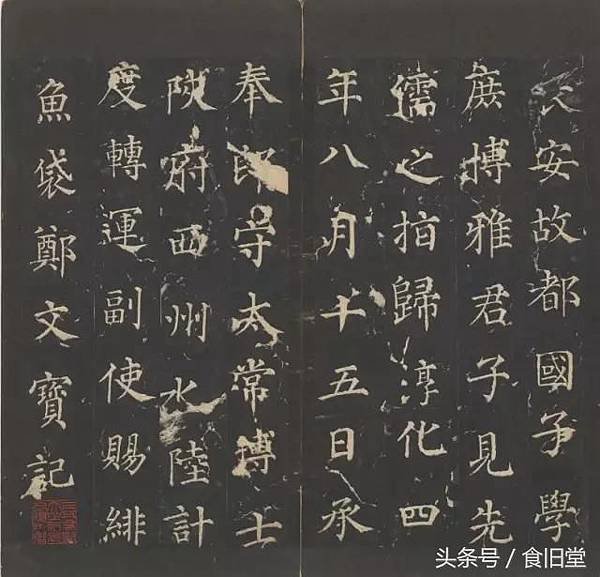 長安故都國子學
庶博雅君子見先
儒之指歸淳化四
年八月十五日承
奉郎守太常博士
陝府西州水陸計
度轉運副使賜緋
魚袋鄭文寶記
头条号 / 食旧堂